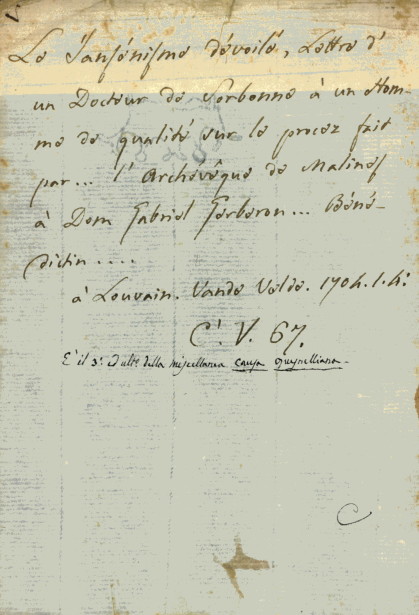 Le Jansénisme dévoilé, Lettre d'
un Docteur de Sorbonne à un Hom-
me de qualité sur le procez fait
par... l'Archevêque de Malines
à Dom Gabriel Gerberon... Béné-
dictin....
à Louvain. Vande Velde. 1704. 4.º
C! V. 67.
È il 3.º ed ult.º della miscellanea causa quesnelliana.
C